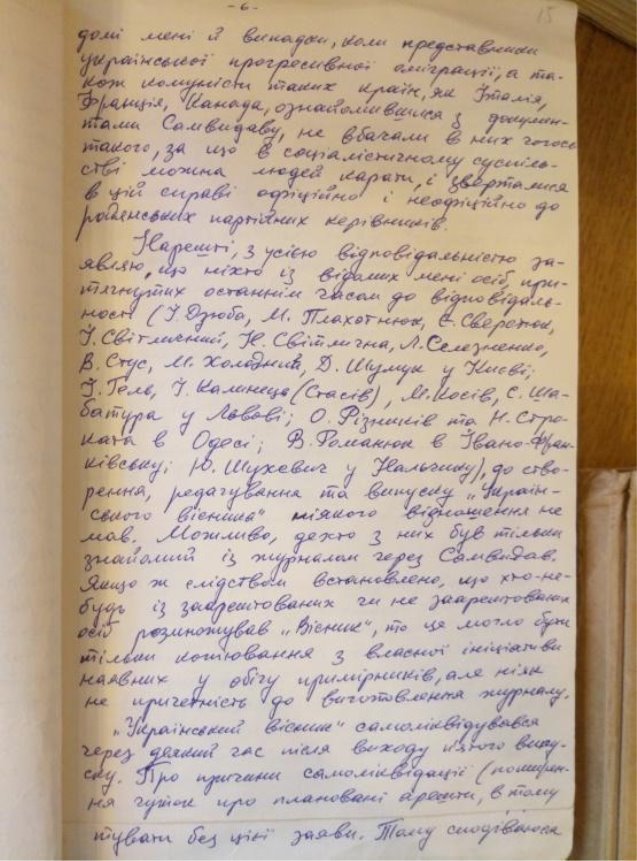 -6-
15
домі мені й випадки, коли представники
української прогресивної еміграції, а та-
кож комуністи таких країн, як Італія,
Франція, Канада, ознайомившися з докумен-
тами Самвидаву, не вбачали в них чогось
такого, за що в соціалістичному суспіль-
стві можна людей карати, і зверталися
в цій справі офіційно і неофіційно до
радянських партійних керівників.
Нарешті, з усією відповідальністю за-
являю, що ніхто із відомих мені осіб, при-
тягнутих останнім часом до відповідаль-
ності (І. Дзюба, М. Плахотнюк, Є. Сверстюк,
І. Світличний, Н. Світлична, Л. Селезненко,
В. Стус, М. Холодний, Д. Шумук у Києві;
І. Гель, І. Калинець (Стасів), М. Косів, С. Ша-
батура у Львові; О. Різників та Н. Стро-
ката в Одесі; В. Романюк в Івано-Фран-
ківську; Ю. Шухевич у Нальчику), до ство-
рення, редагування та випуску „Україн-
ського вісника" ніякого відношення не
мав. Можливо, дехто з них був тільки
знайомий із журналом через Самвидав.
Якщо ж слідством встановлено, що хто-не-
будь із заарештованих чи не заарештованих
осіб розмножував „Вісник", то це могло бути
тільки копіювання з власної ініціативи
наявних у обігу примірників, але ніяк
не причетність до виготовлення журналу.
„Український вісник" самоліквідувався
через деякий час після виходу п'ятого випу-
ску. Про причини самоліквідації (поширен-
ня чуток про плановані арешти, в тому
тувати без цієї заяви. Тому сподіваюся